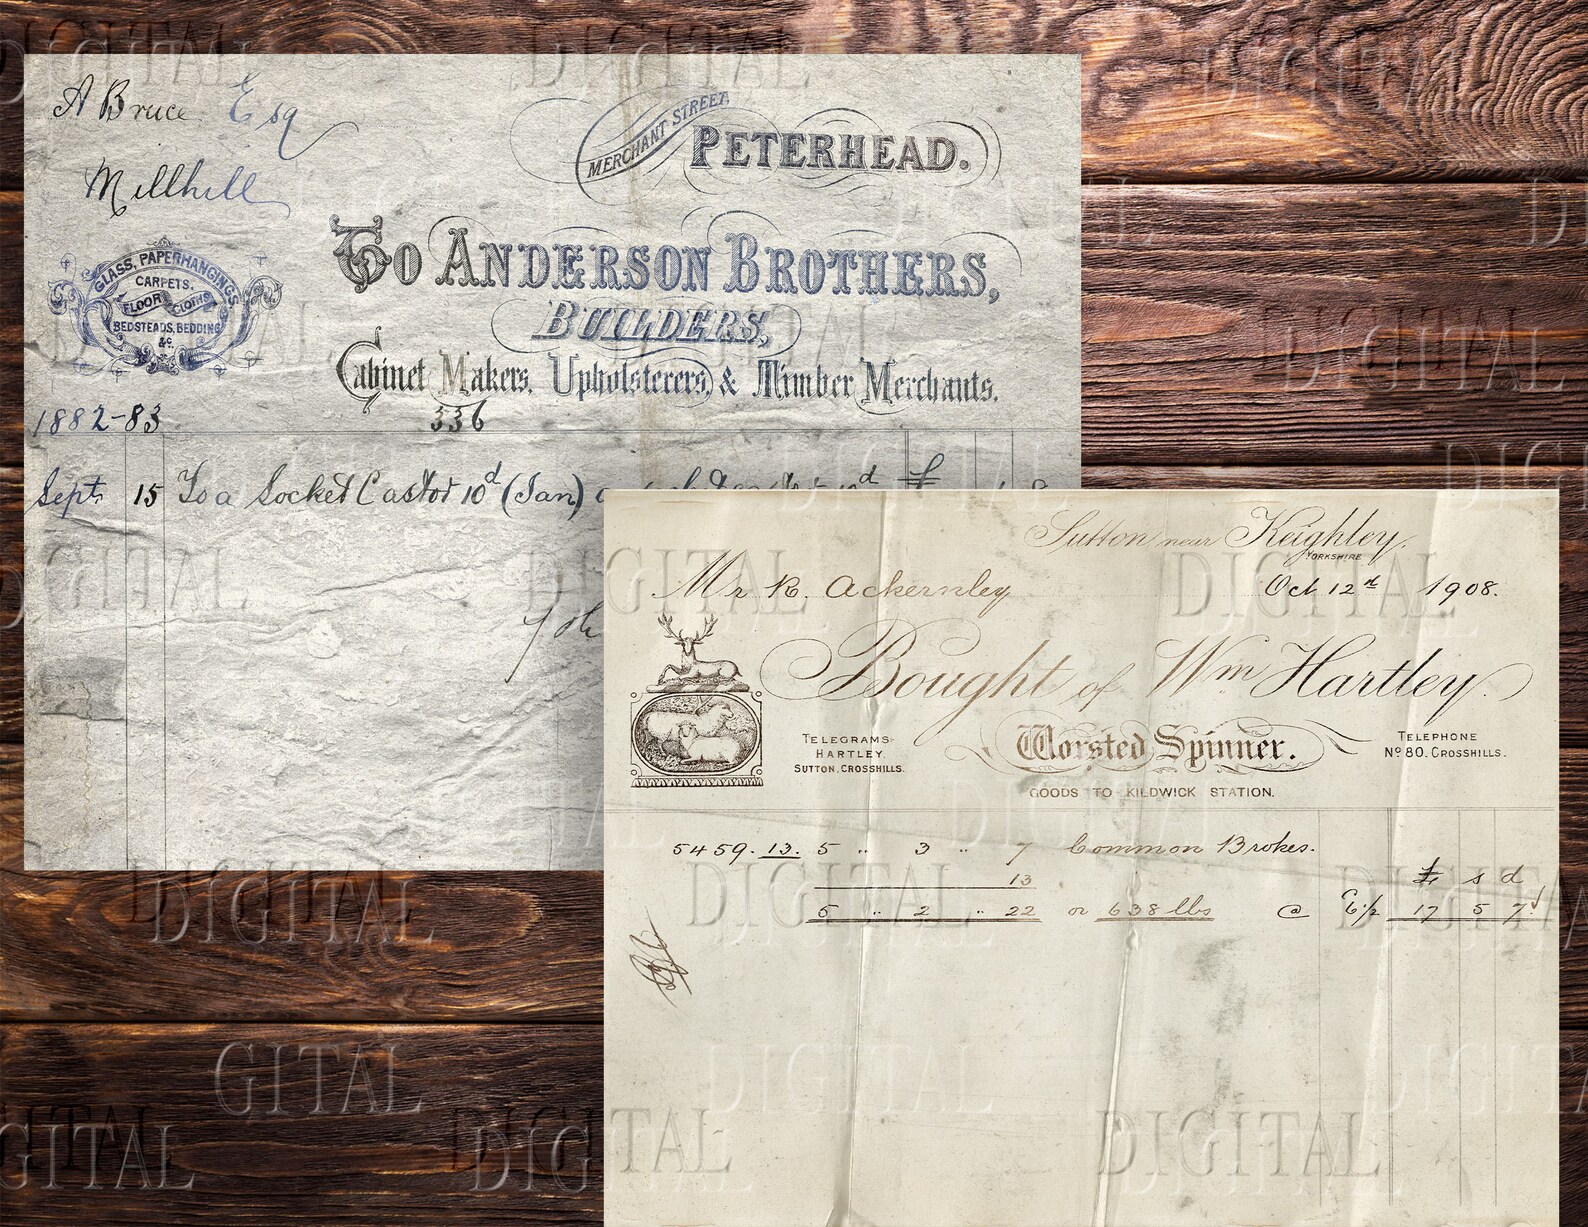 A Bruce Esq
Millhill
MERCHANT STREET
PETERHEAD.
GLASS, PAPERHANGINGS
CARPETS,
FLOOR CLOTHS
BEDSTEADS, BEDDING
&c.
To ANDERSON BROTHERS,
BUILDERS,
Cabinet Makers, Upholsterers, & Timber Merchants.
1882-83
336
Sept 15 To a Socket Castor 10d (Jan)
10d £
Sutton near Keighley,
YORKSHIRE
Mr R. Ackernley
Oct 12th 1908.
Bought of Wm Hartley.
TELEGRAMS
HARTLEY,
SUTTON, CROSSHILLS.
Worsted Spinner.
TELEPHONE
No 80. CROSSHILLS.
GOODS TO KILDWICK STATION.
5459. 13. 5 " 3 " 7 Common Brokes.
13
£ s d
5 " 2 " 22 or 638 lbs @ 6½ 17 5 7
DIGITAL